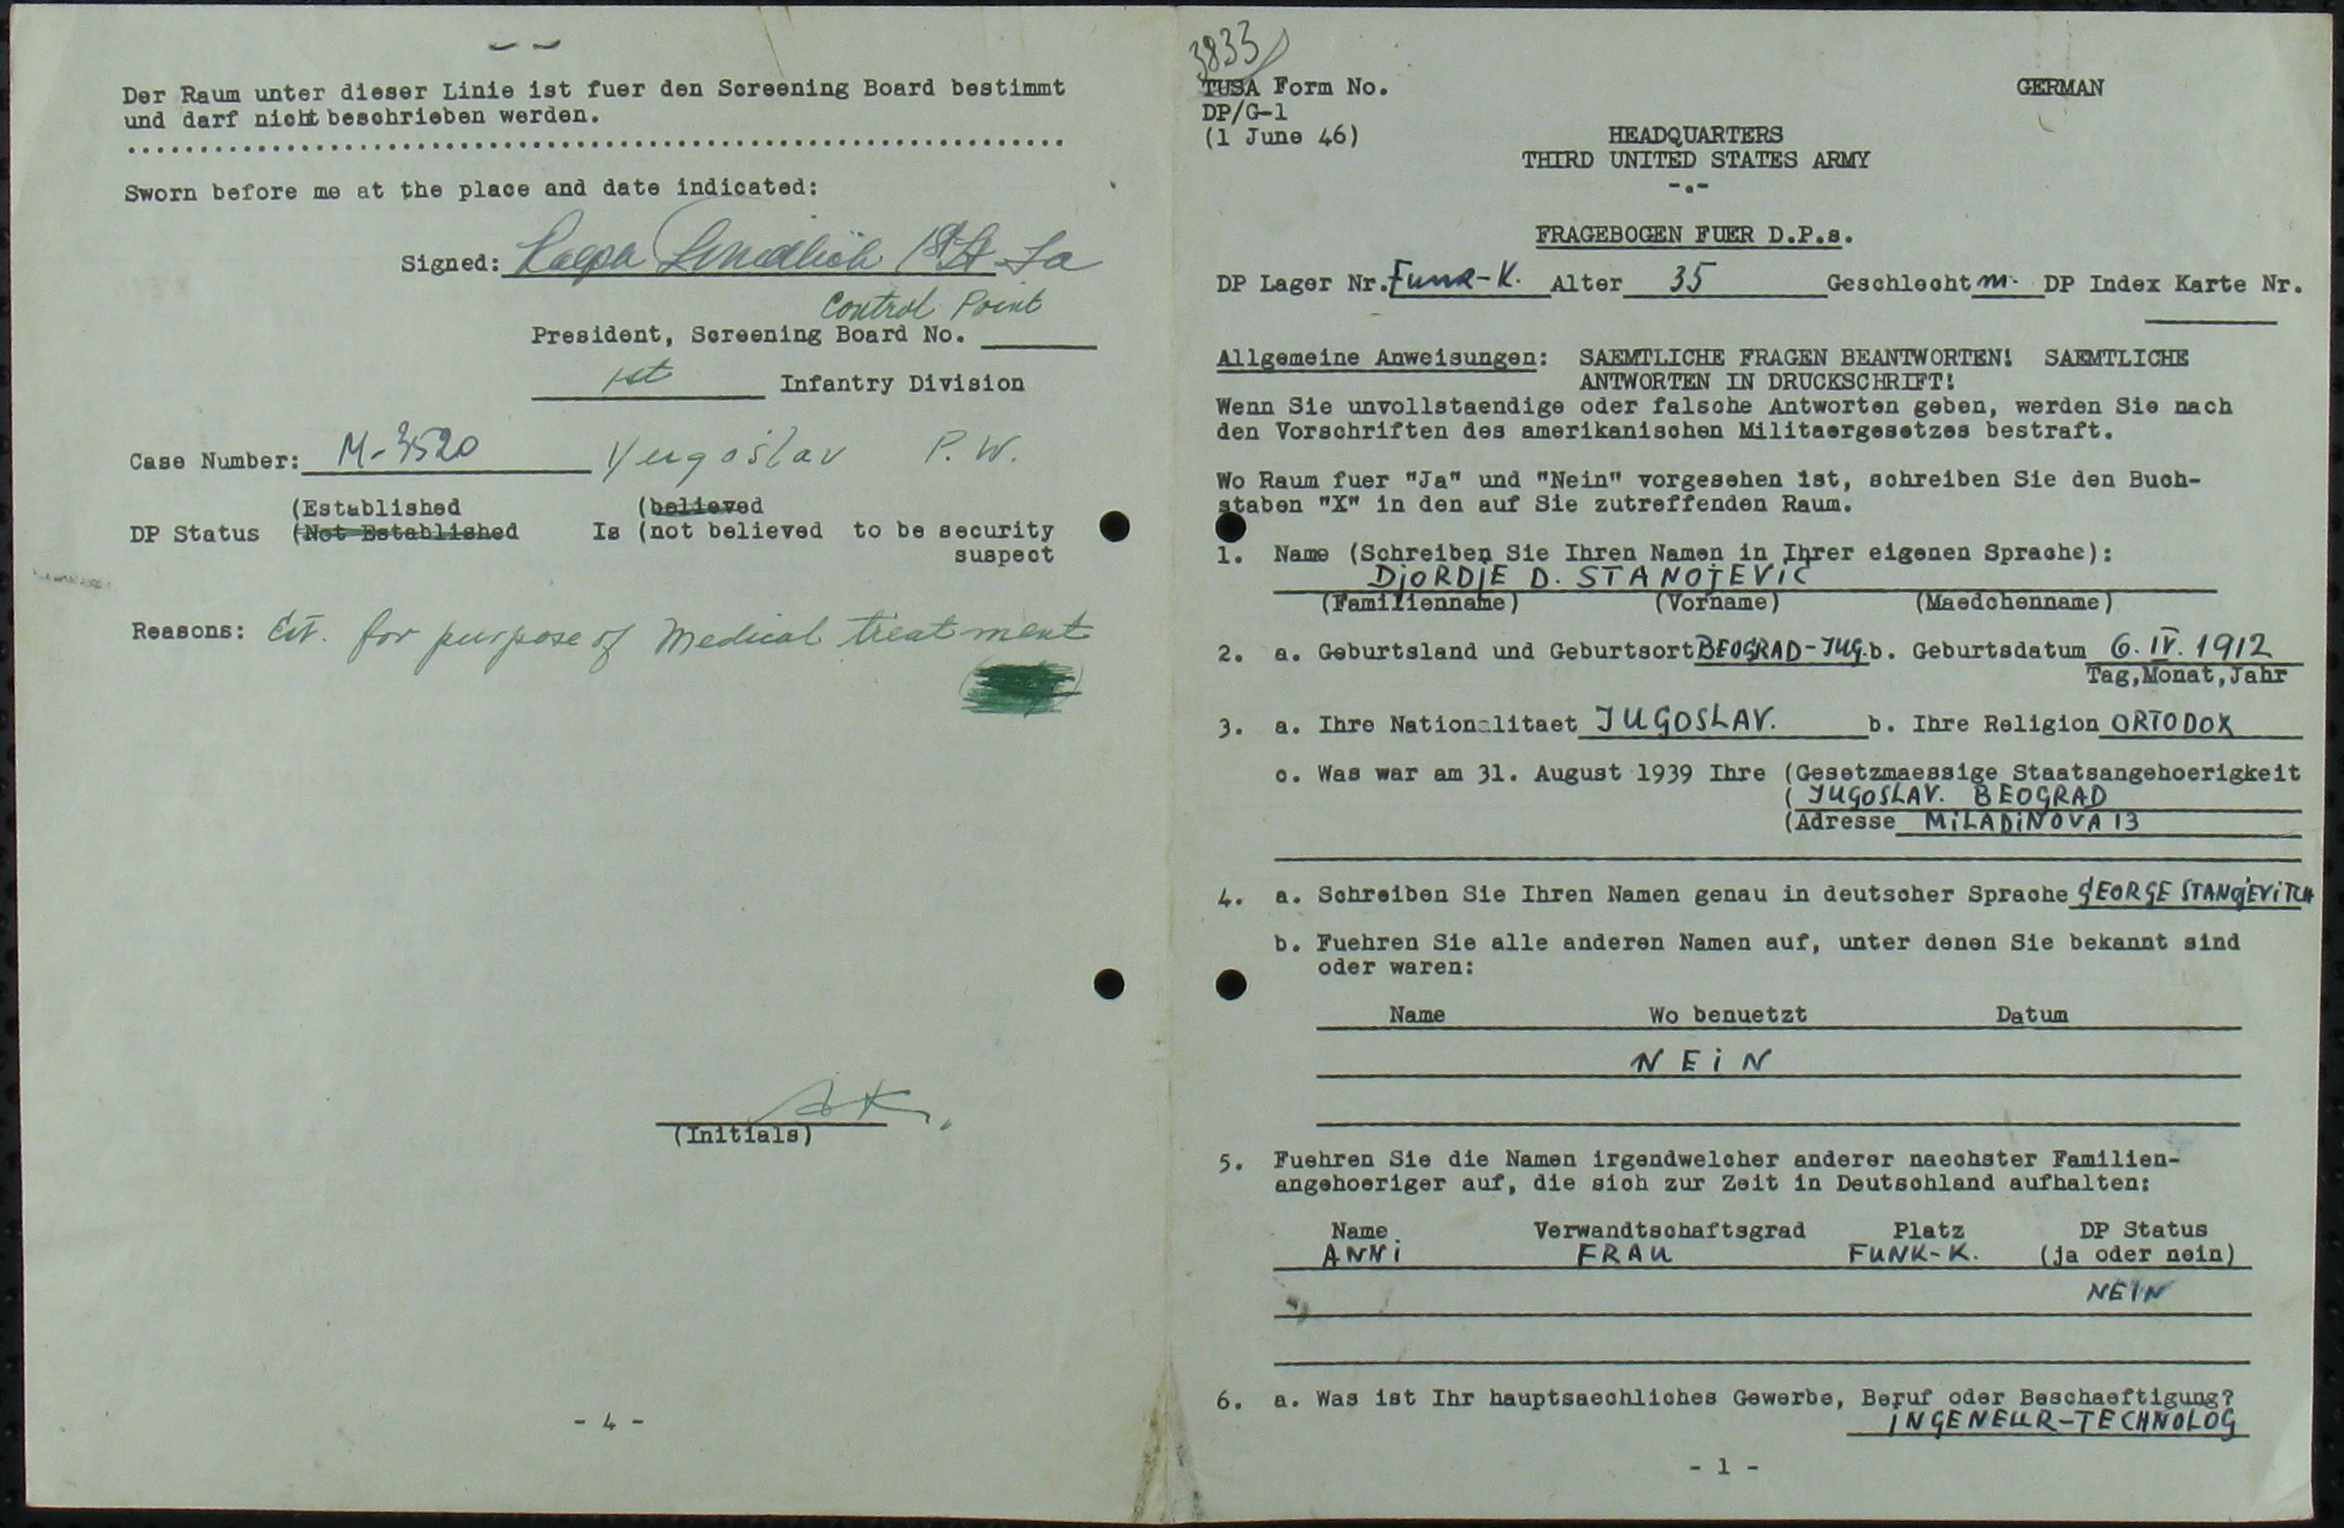 Der Raum unter dieser Linie ist fuer den Screening Board bestimmt
und darf nicht beschrieben werden.
Sworn before me at the place and date indicated:
Signed: 1st Lt
Control Point
President, Screening Board No.
1st Infantry Division
Case Number: M-3520 Yugoslav P.W.
(Established (believed
DP Status (Not Established Is (not believed to be security
suspect
Reasons: for purpose of Medical treatment
(Initials)
- 4 -
3833
TUSA Form No. GERMAN
DP/G-1
(1 June 46) HEADQUARTERS
THIRD UNITED STATES ARMY
-.-
FRAGEBOGEN FUER D.P.s.
DP Lager Nr. Funk-K. Alter 35 Geschlecht m. DP Index Karte Nr.
Allgemeine Anweisungen: SAEMTLICHE FRAGEN BEANTWORTEN! SAEMTLICHE
ANTWORTEN IN DRUCKSCHRIFT!
Wenn Sie unvollstaendige oder falsche Antworten geben, werden Sie nach
den Vorschriften des amerikanischen Militaergesetzes bestraft.
Wo Raum fuer "Ja" und "Nein" vorgesehen ist, schreiben Sie den Buch-
staben "X" in den auf Sie zutreffenden Raum.
1. Name (Schreiben Sie Ihren Namen in Ihrer eigenen Sprache):
DjORDjE D. STANOjEViĆ
(Familienname) (Vorname) (Maedchenname)
2. a. Geburtsland und Geburtsort BEOGRAD-JUG. b. Geburtsdatum 6. IV. 1912
Tag,Monat,Jahr
3. a. Ihre Nationalitaet JUGOSLAV. b. Ihre Religion ORTODOX
c. Was war am 31. August 1939 Ihre (Gesetzmaessige Staatsangehoerigkeit
( JUGOSLAV. BEOGRAD
(Adresse MiLADiNOVA 13
4. a. Schreiben Sie Ihren Namen genau in deutscher Sprache GEORGE STANOjEViTCH
b. Fuehren Sie alle anderen Namen auf, unter denen Sie bekannt sind
oder waren:
Name Wo benuetzt Datum
NEiN
5. Fuehren Sie die Namen irgendwelcher anderer naechster Familien-
angehoeriger auf, die sich zur Zeit in Deutschland aufhalten:
Name Verwandtschaftsgrad Platz DP Status
ANNi FRAU FUNK-K. (ja oder nein)
NEIN
6. a. Was ist Ihr hauptsaechliches Gewerbe, Beruf oder Beschaeftigung?
iNGENEUR-TECHNOLOG
- 1 -